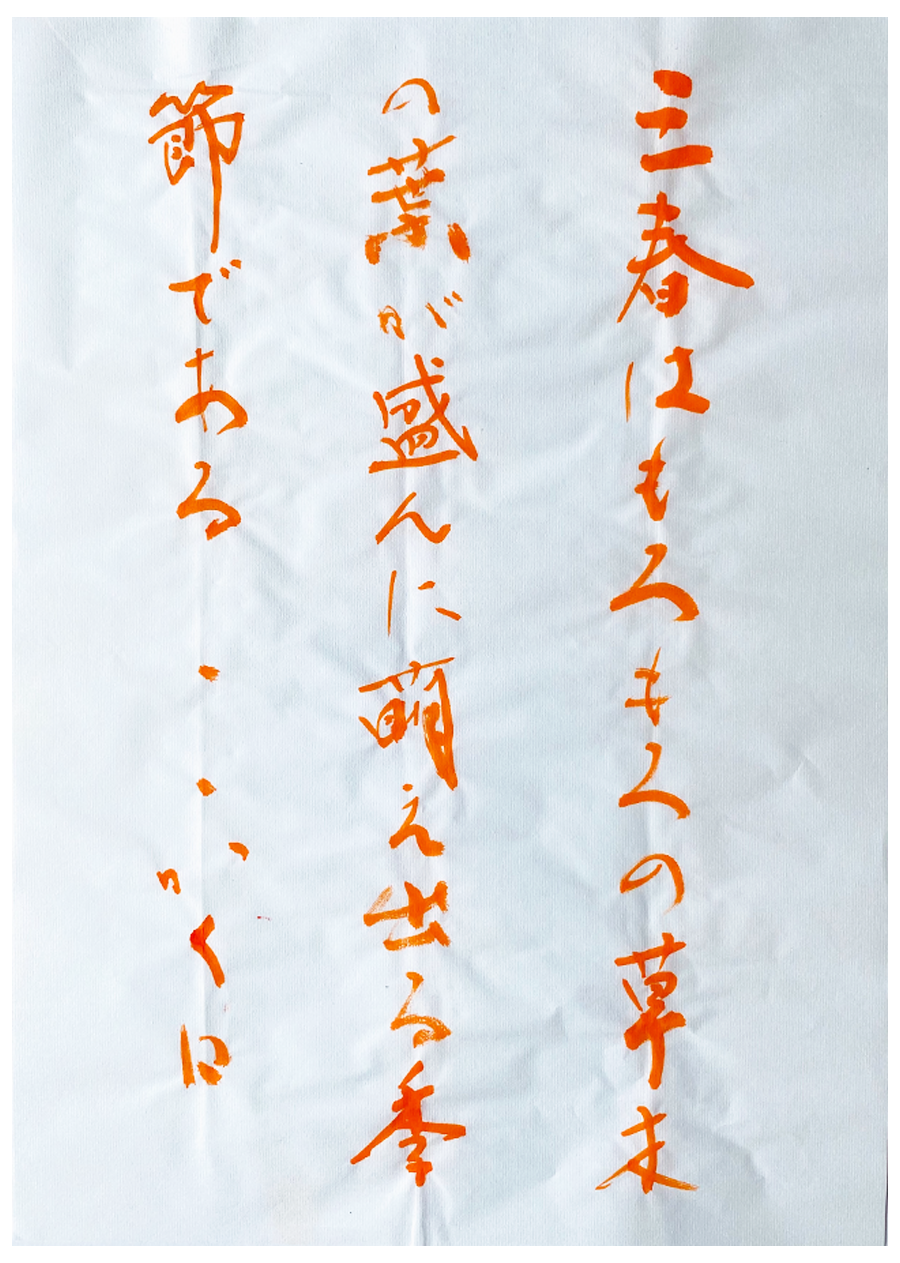 三春はもろもろの草木
の葉が盛んに萌え出る季
節である